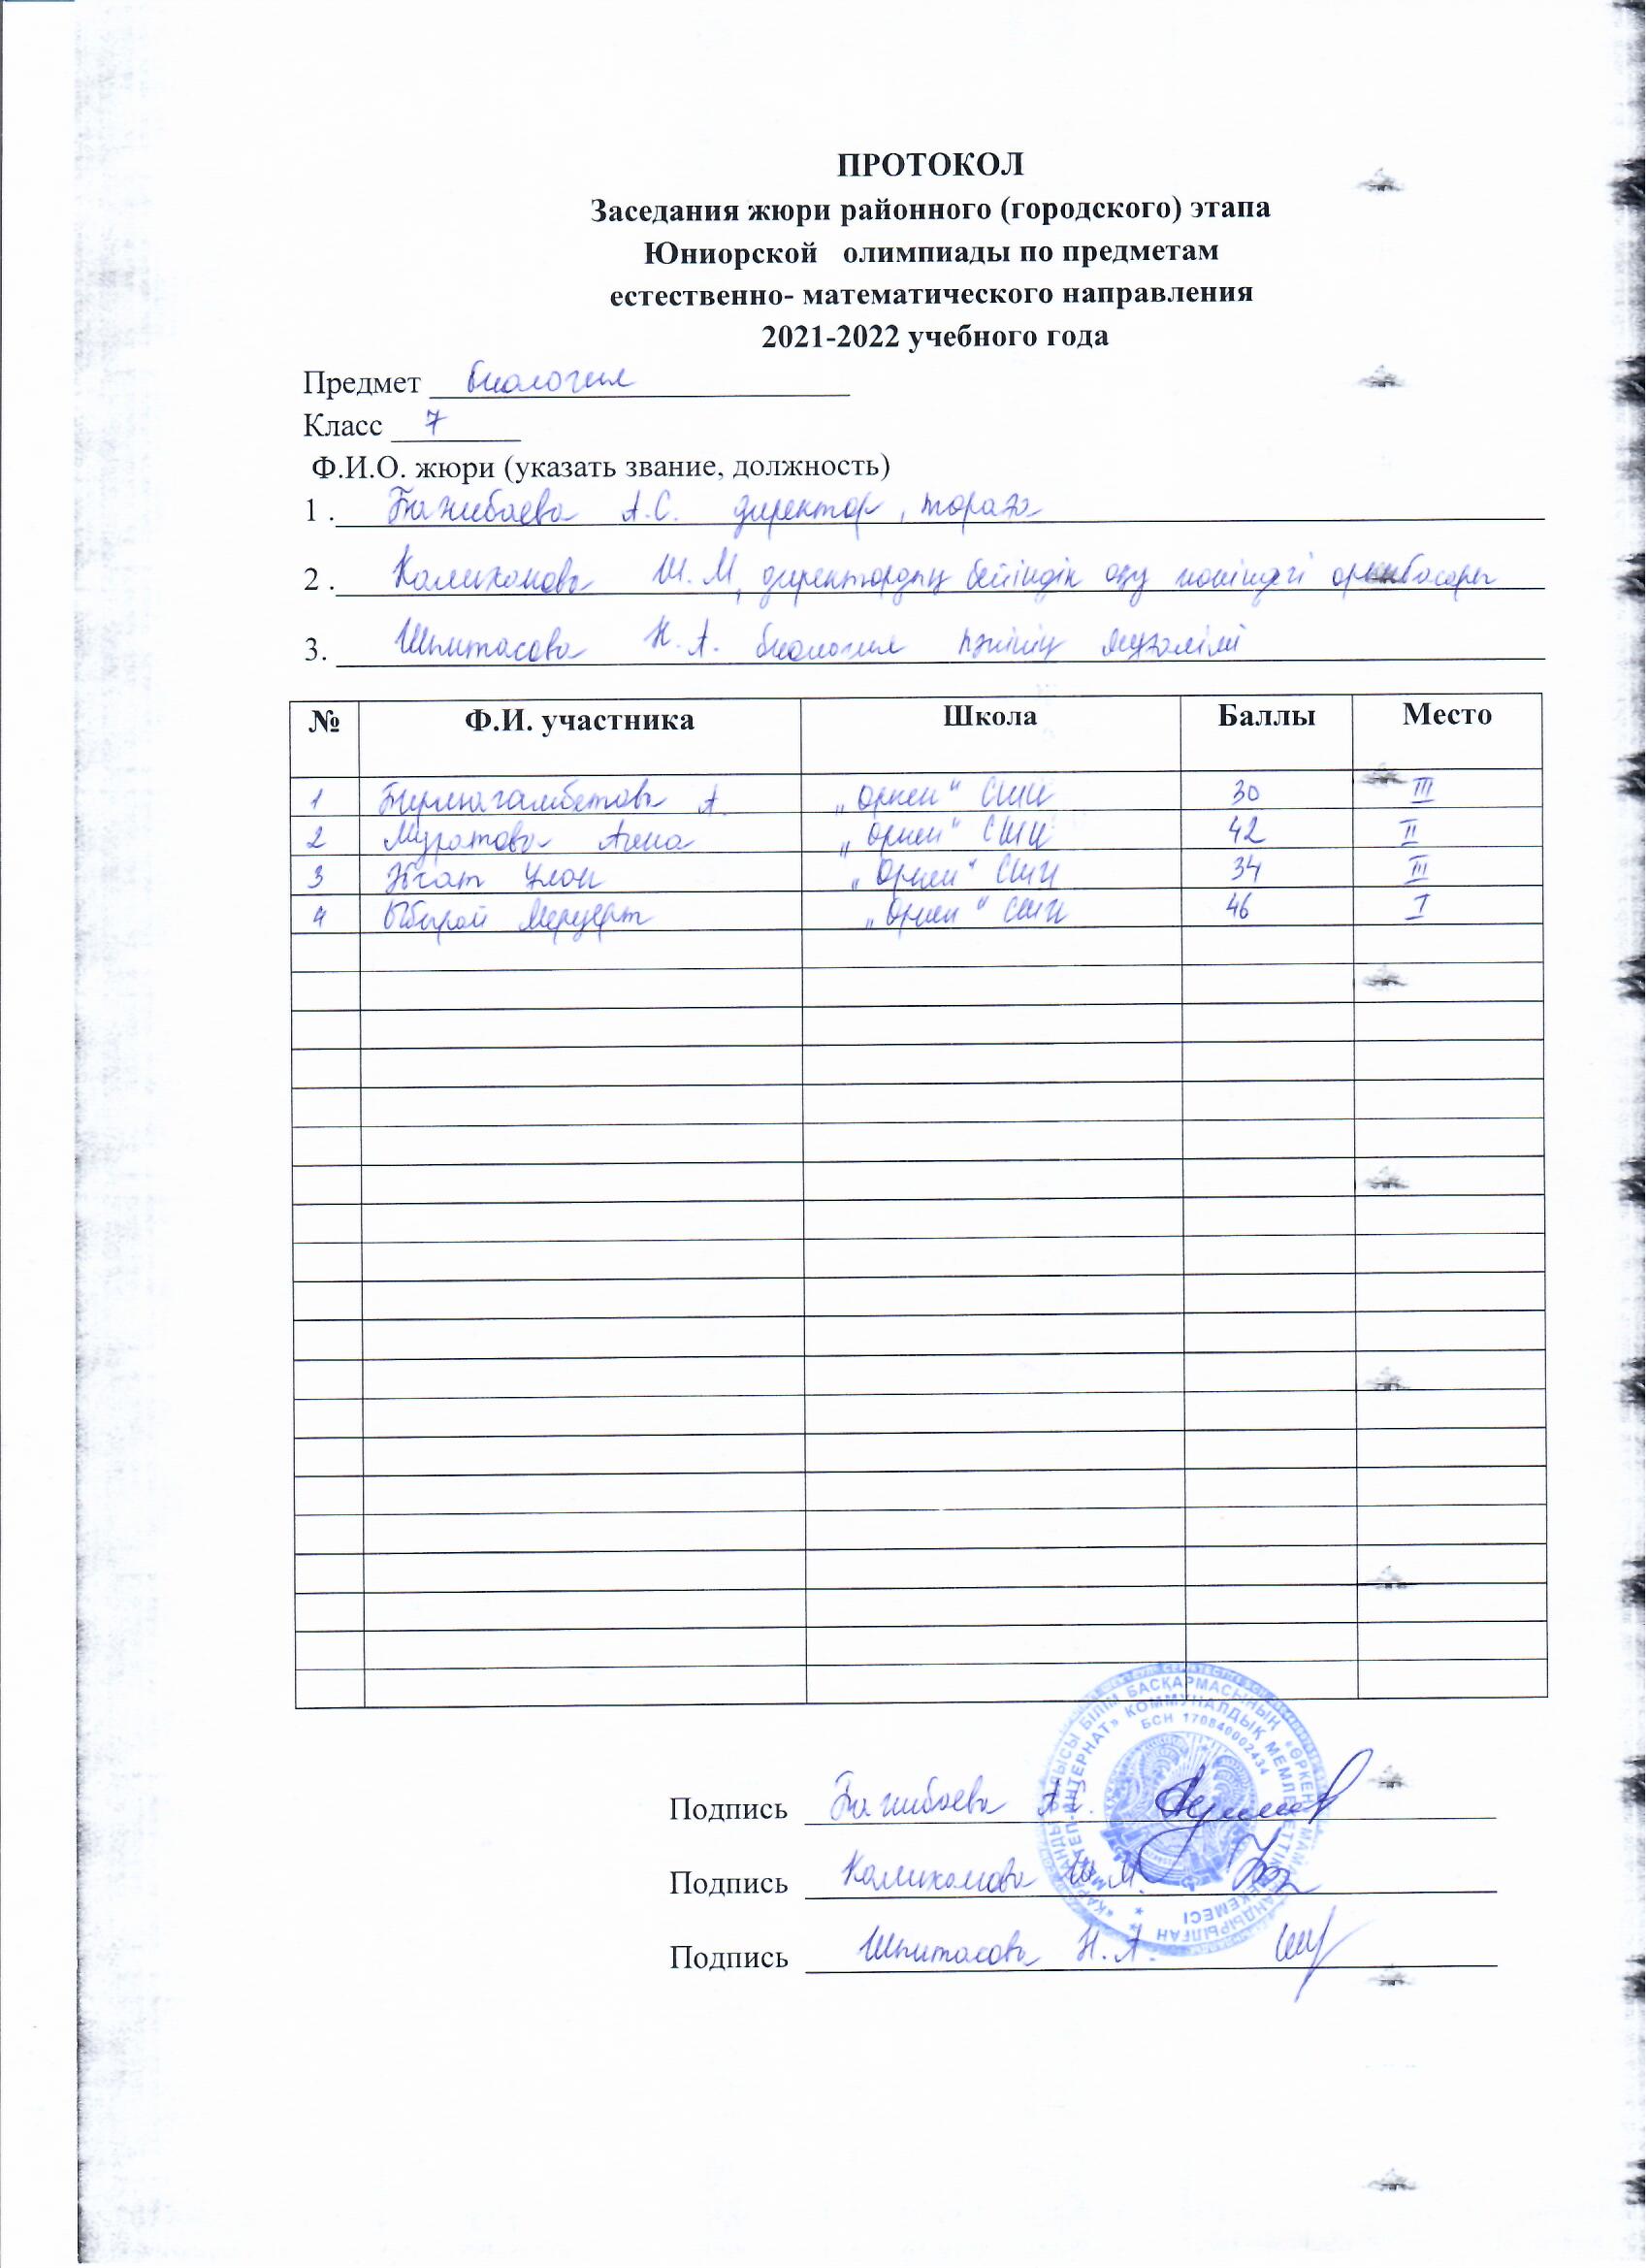 ПРОТОКОЛ
Заседания жюри районного (городского) этапа
Юниорской олимпиады по предметам
естественно- математического направления
2021-2022 учебного года
Предмет биология
Класс 7
Ф.И.О. жюри (указать звание, должность)
1 . Бажибаева А.С. директор, төраға
2 . Калиханова Ш.М, директордың бейіндік оқу жөніндегі орынбасары
3. Шпитасова Н.А. биология пәнінің мұғалімі
№ Ф.И. участника Школа Баллы Место
1 Бирмагамбетова А. „Өркен“ СШИ 30 III
2 Муратова „Өркен“ СШИ 42 II
3 „Өркен“ СШИ 34 III
4 Ыбырай Меруерт „Өркен“ СШИ 46 I
Подпись Бажибаева А.С.
Подпись Калиханова Ш.М.
Подпись Шпитасова Н.А.
БСН 170840002434